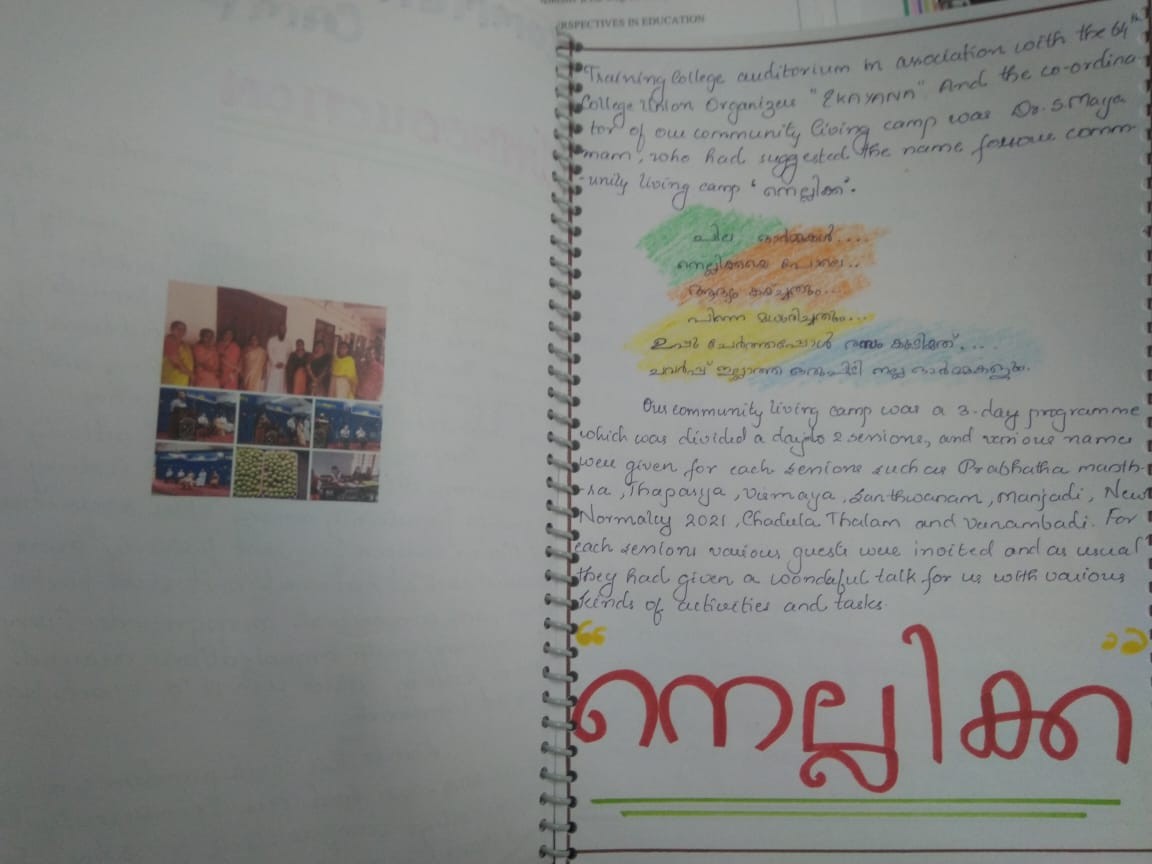 RSPECTIVES IN EDUCATION
Training College auditorium in association with the 64th
College Union Organizes "EKAYANA" And the co-ordina
tor of our community living camp was Dr. S. Maya
mam, who had suggested the name for our comm
-unity living camp 'നെല്ലിക്ക'.
ചില ഓർമ്മകൾ....
നെല്ലിക്കയെ പോലെ..
ആദ്യം കയ്ച്ചതും...
പിന്നെ മധുരിച്ചതും...
ഉപ്പു ചേർത്തപ്പോൾ രസം കൂടിയത്....
ചവർപ്പ് ഇല്ലാത്ത ഒരുപിടി നല്ല ഓർമ്മകളും.
Our community living camp was a 3-day programme
which was divided a day to 2 sessions, and various names
were given for each sessions such as Prabhatha manth-
-ra, Thapasya, Vismaya, Santhwanam, Manjadi, New
Normalcy 2021, Chadula Thalam and Vanambadi. For
each sessions various guests were invited and as usual
they had given a wonderful talk for us with various
kinds of activities and tasks.
"നെല്ലിക്ക"